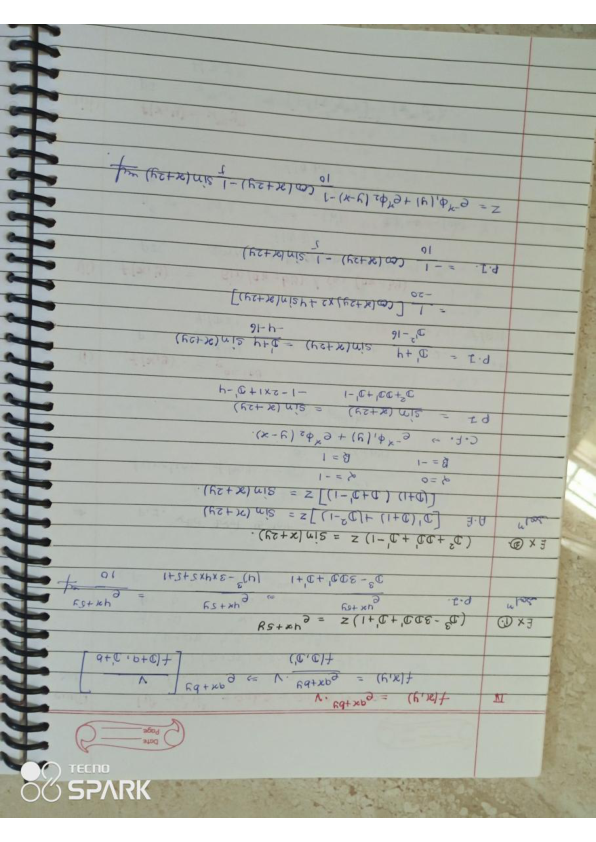 Date
Page
IV f(x,y) = e^(ax+by) . V
f(x,y) = e^(ax+by) . V / f(D,D') ⇒ e^(ax+by) [ V / f(D+a, D'+b) ]
Ex ①. (D³ - 3DD' + D' + 1) z = e^(4x+5y)
Solⁿ P.I. e^(4x+5y) / D³ - 3DD' + D' + 1 = e^(4x+5y) / (4)³ - 3x4x5 + 5 + 1 = e^(4x+5y) / 10
Ex ②. (D² + DD' + D' - 1) z = sin(x+2y).
Solⁿ A.E [D'(D+1) + (D²-1)] z = sin(x+2y)
[(D+1) (D+D'-1)] z = sin(x+2y).
α = 0 α = -1
β = -1 β = 1
C.F. ⇒ e^-x φ₁(y) + e^x φ₂ (y-x).
P.I = sin(x+2y) / D²+DD'+D'-1 = sin(x+2y) / -1-2x1+D'-1
P.I = D'+4 / D'²-16 sin(x+2y) = D'+4 / -4-16 sin(x+2y)
= 1 / -20 [cos(x+2y)x2 + 4sin(x+2y)]
P.I. = -1/10 cos(x+2y) - 1/5 sin(x+2y)
z = e^-x φ₁(y) + e^x φ₂ (y-x) - 1/10 cos(x+2y) - 1/5 sin(x+2y)
TECNO
SPARK